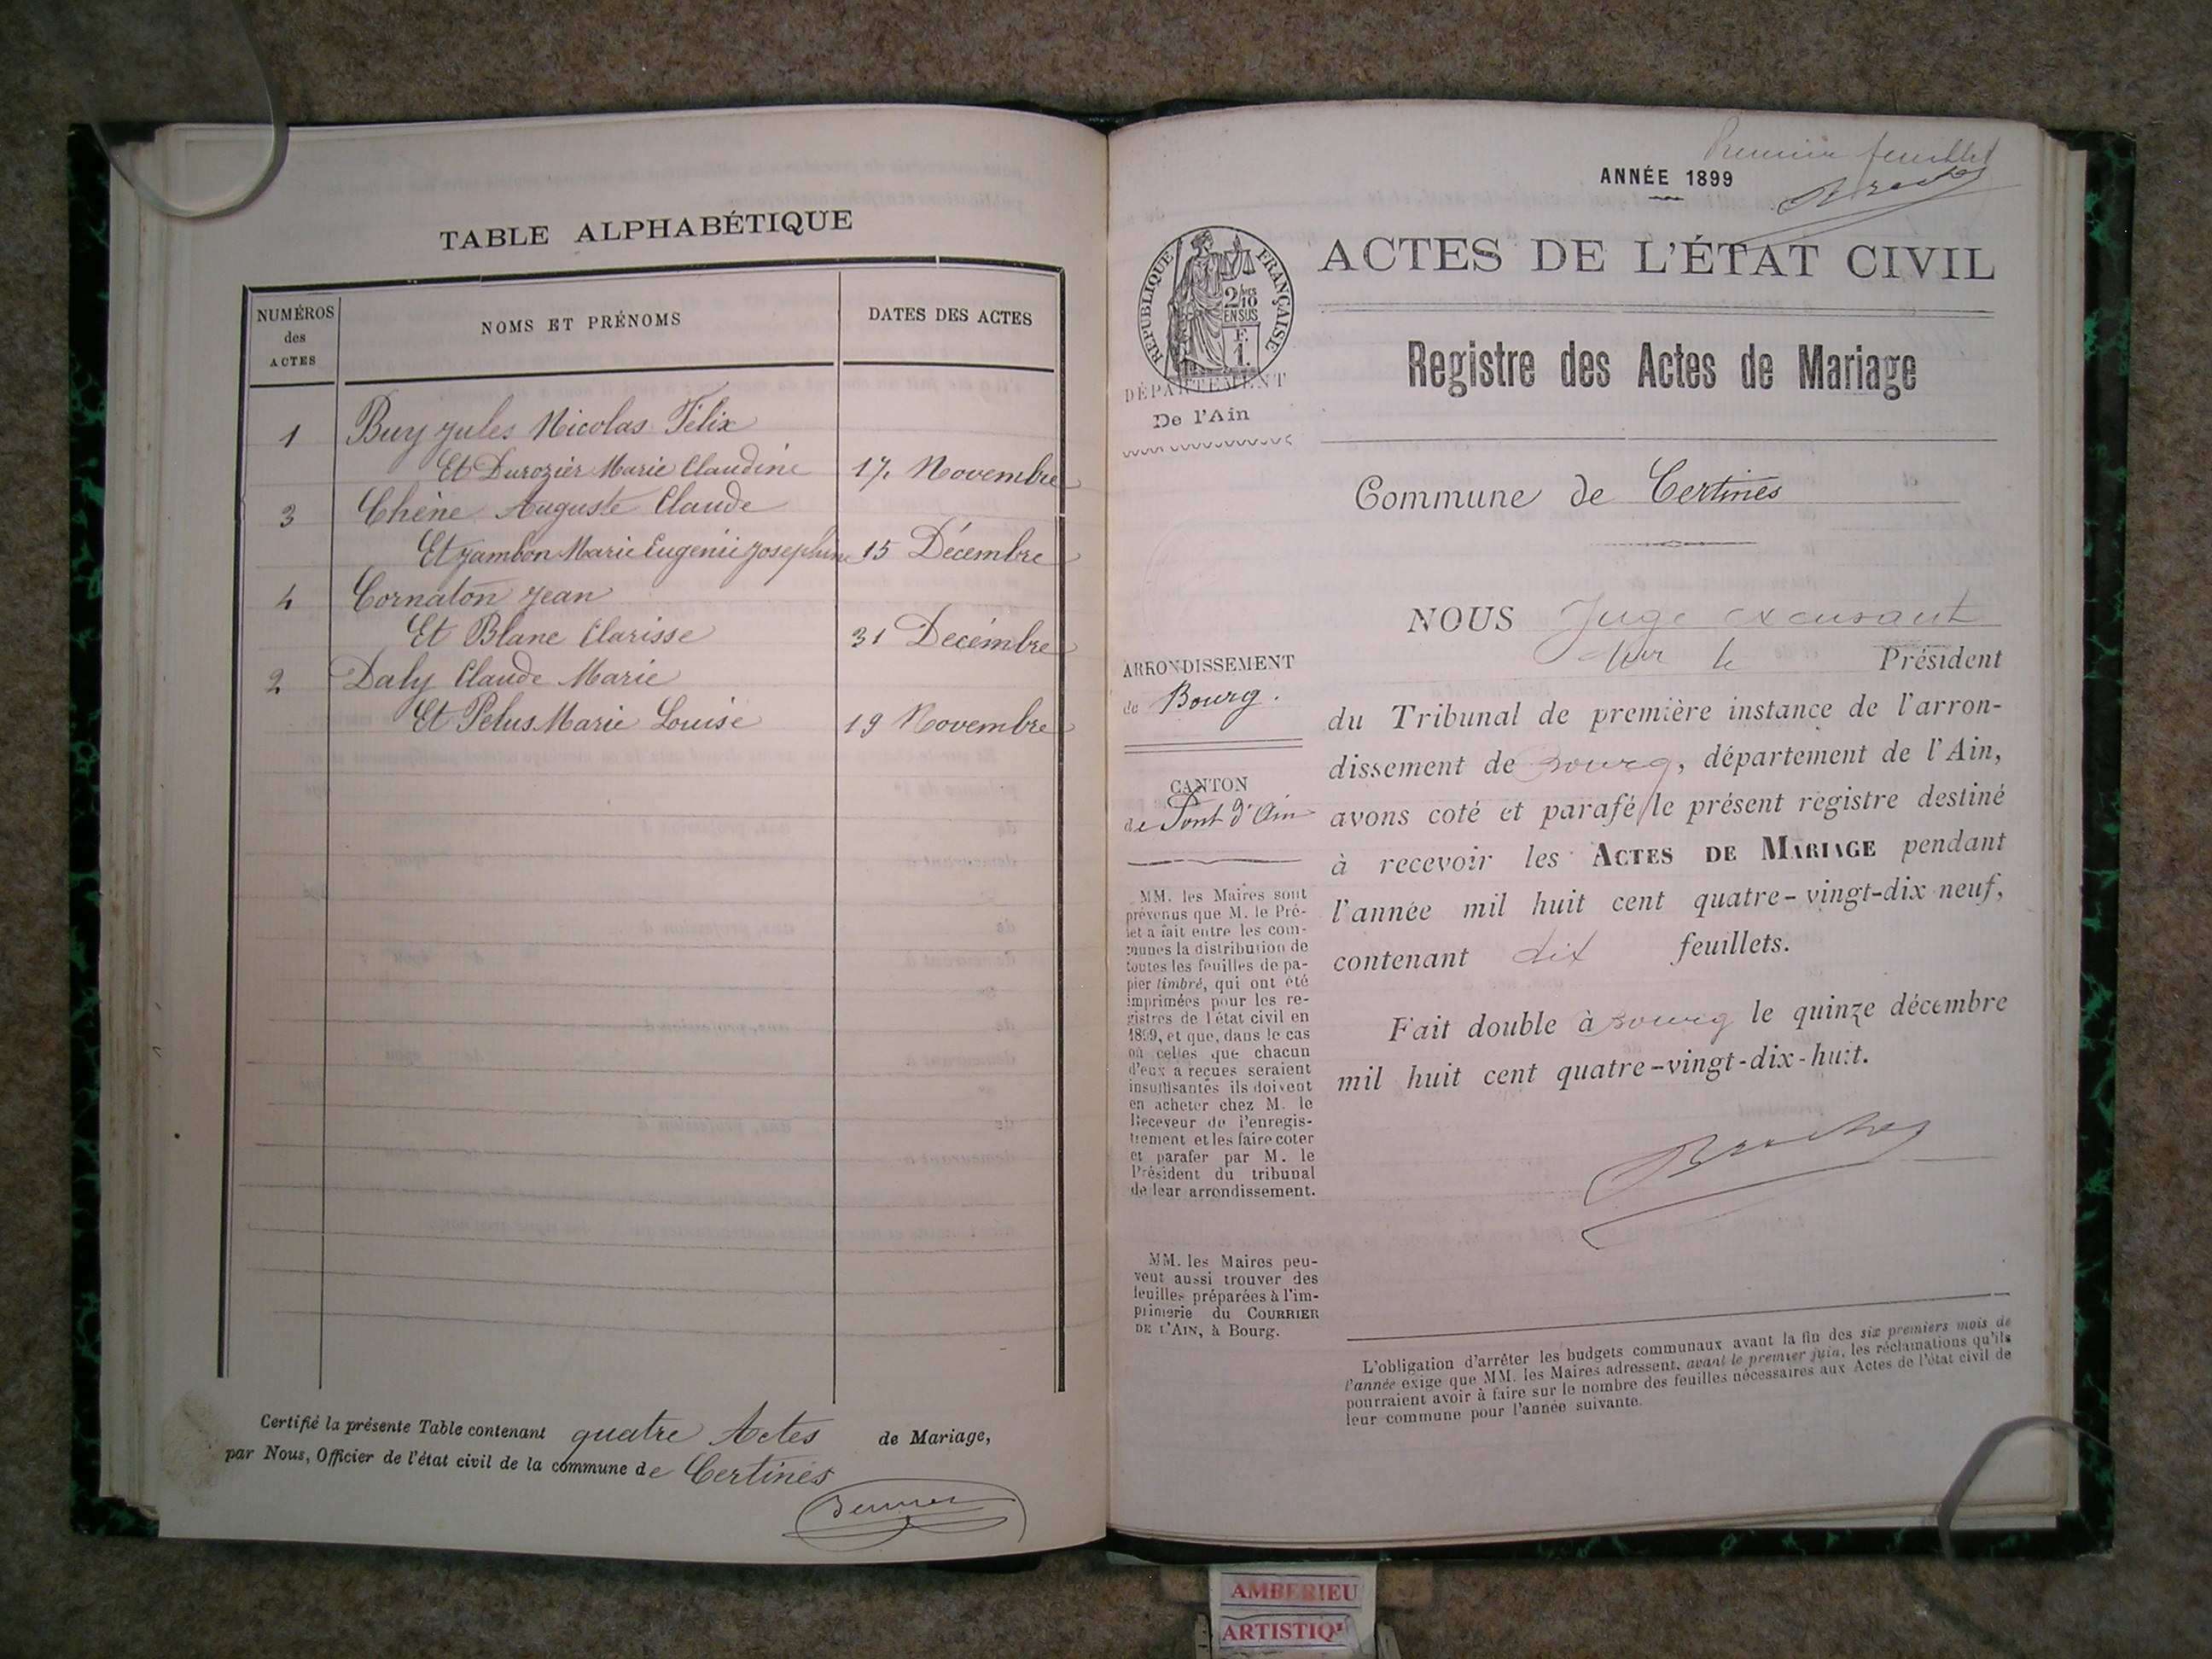 TABLE ALPHABÉTIQUE
NUMÉROS des ACTES
NOMS ET PRÉNOMS
DATES DES ACTES
1 Buy Jules Nicolas Félix
Et Durozier Marie Claudine 17 Novembre
3 Chêne Auguste Claude
Et Jambon Marie Eugenie Josephine 15 Décembre
4 Cornaton Jean
Et Blanc Clarisse 31 Decémbre
2 Daly Claude Marie
Et Pelus Marie Louise 19 Novembre
Certifié la présente Table contenant quatre Actes de Mariage,
par Nous, Officier de l'état civil de la commune de Certines
Premier feuillet
ANNÉE 1899
RÉPUBLIQUE FRANÇAISE
2/10
EN SUS
ACTES DE L'ÉTAT CIVIL
Registre des Actes de Mariage
DÉPARTEMENT
De l'Ain
Commune de Certines
ARRONDISSEMENT
de Bourg.
CANTON
de Pont d'Ain
MM. les Maires sont
prévenus que M. le Pré-
fet a fait entre les com-
munes la distribution de
toutes les feuilles de pa-
pier timbré, qui ont été
imprimées pour les re-
gistres de l'état civil en
1899, et que, dans le cas
où celles que chacun
d'eux a reçues seraient
insuffisantes ils doivent
en acheter chez M. le
Receveur de l'enregis-
trement et les faire coter
et parafer par M. le
Président du tribunal
de leur arrondissement.
MM. les Maires peu-
vent aussi trouver des
feuilles préparées à l'im-
primerie du COURRIER
DE L'AIN, à Bourg.
NOUS Juge excusant
Mr le Président
du Tribunal de première instance de l'arron-
dissement de Bourg, département de l'Ain,
avons coté et parafé le présent registre destiné
à recevoir les ACTES DE MARIAGE pendant
l'année mil huit cent quatre-vingt-dix neuf,
contenant dix feuillets.
Fait double à Bourg le quinze décembre
mil huit cent quatre-vingt-dix-huit.
L'obligation d'arrêter les budgets communaux avant la fin des six premiers mois de
l'année exige que MM. les Maires adressent, avant le premier juin, les réclamations qu'ils
pourraient avoir à faire sur le nombre des feuilles nécessaires aux Actes de l'état civil de
leur commune pour l'année suivante.
AMBERIEU
ARTISTIQ